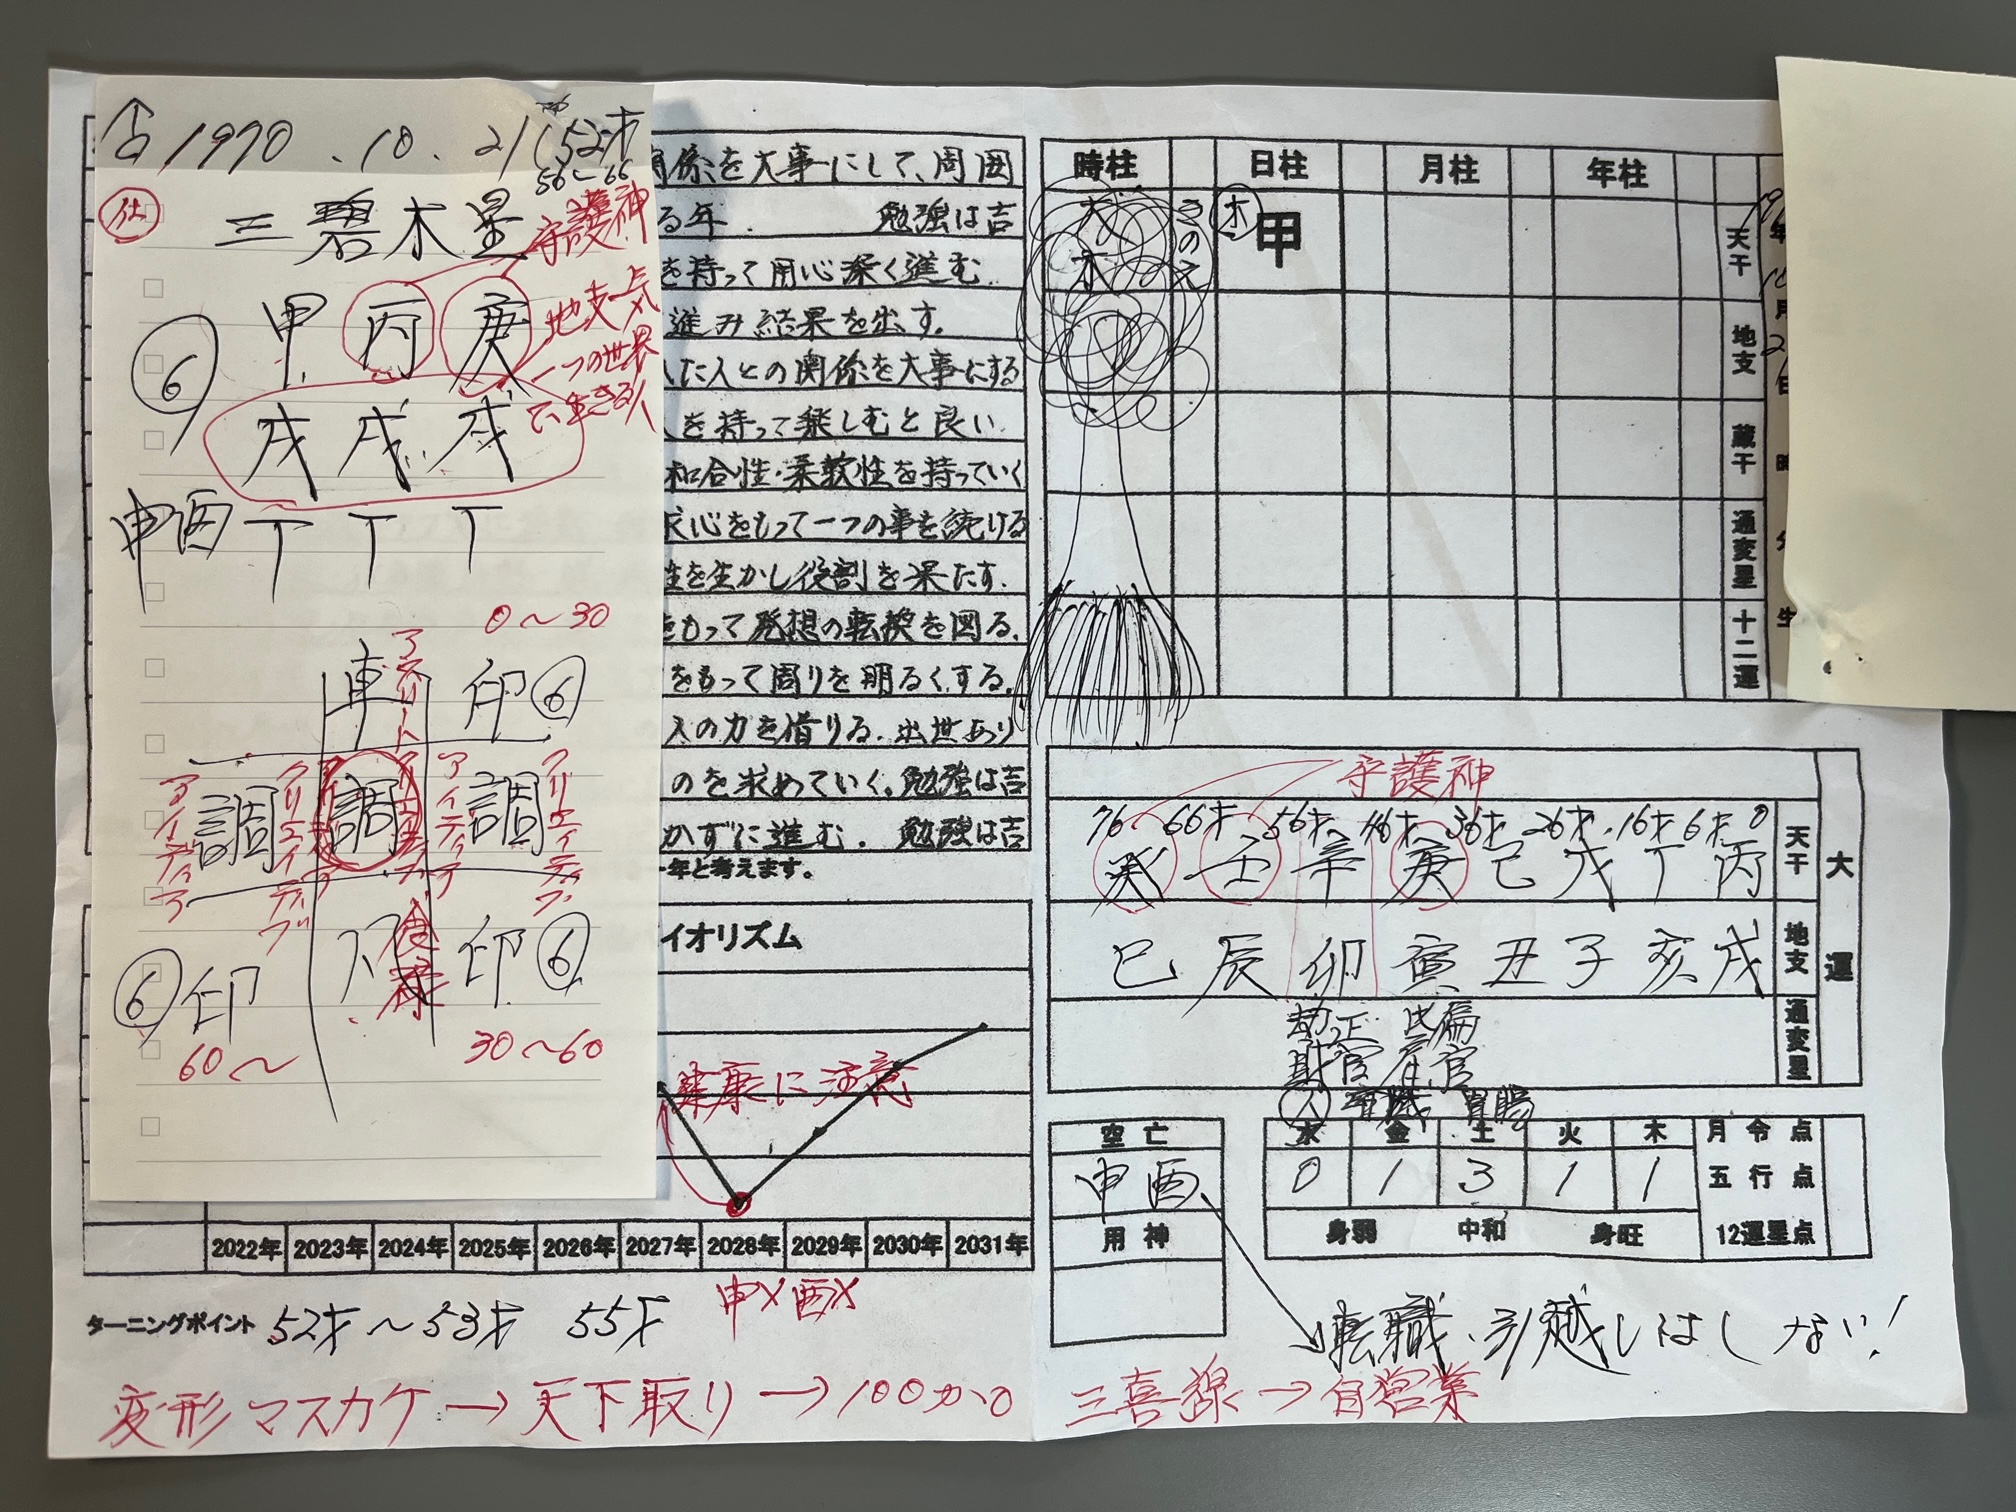 1970.10.21(52才
56~66
三碧木星
守護神
甲 丙 庚
地支一気
一つの世界
で生きる人
⑥
戌 戌 戌
申酉 丁 丁 丁
0~30
車 印⑥
アスリート
調 調 調
アイディア
クリエイティブ
⑥印 印⑥
食禄
60~
30~60
関係を大事にして、周囲
る年. 勉強は吉
を持って用心深く進む.
進み結果を出す.
した人との関係を大事にする
を持って楽しむと良い.
和合性・柔軟性を持っていく
求心をもって一つの事を続ける
性を生かし役割を果たす.
をもって発想の転換を図る.
をもって周りを明るくする.
人の力を借りる.出世あり
のを求めていく。勉強は吉
かずに進む. 勉強は吉
年と考えます。
イオリズム
健康に注意
2022年 2023年 2024年 2025年 2026年 2027年 2028年 2029年 2030年 2031年
申× 酉×
ターニングポイント 52才~53才 55才
変形マスカケ→天下取り→100か0
時柱 日柱 月柱 年柱
大木
きのえ
木 甲
天干
地支
蔵干
通変星
十二運
守護神
76 66才 56才 46才 36才 26才 16才 6才 0
癸 壬 辛 庚 己 戊 丁 丙 天干
巳 辰 卯 寅 丑 子 亥 戌 地支
大運
劫財 正官 比肩 偏官
通変星
空亡
申酉
用神
水 金 土 火 木 月令点
0 1 3 1 1 五行点
身弱 中和 身旺 12運星点
転職・引越しはしない!
三喜線→自営業